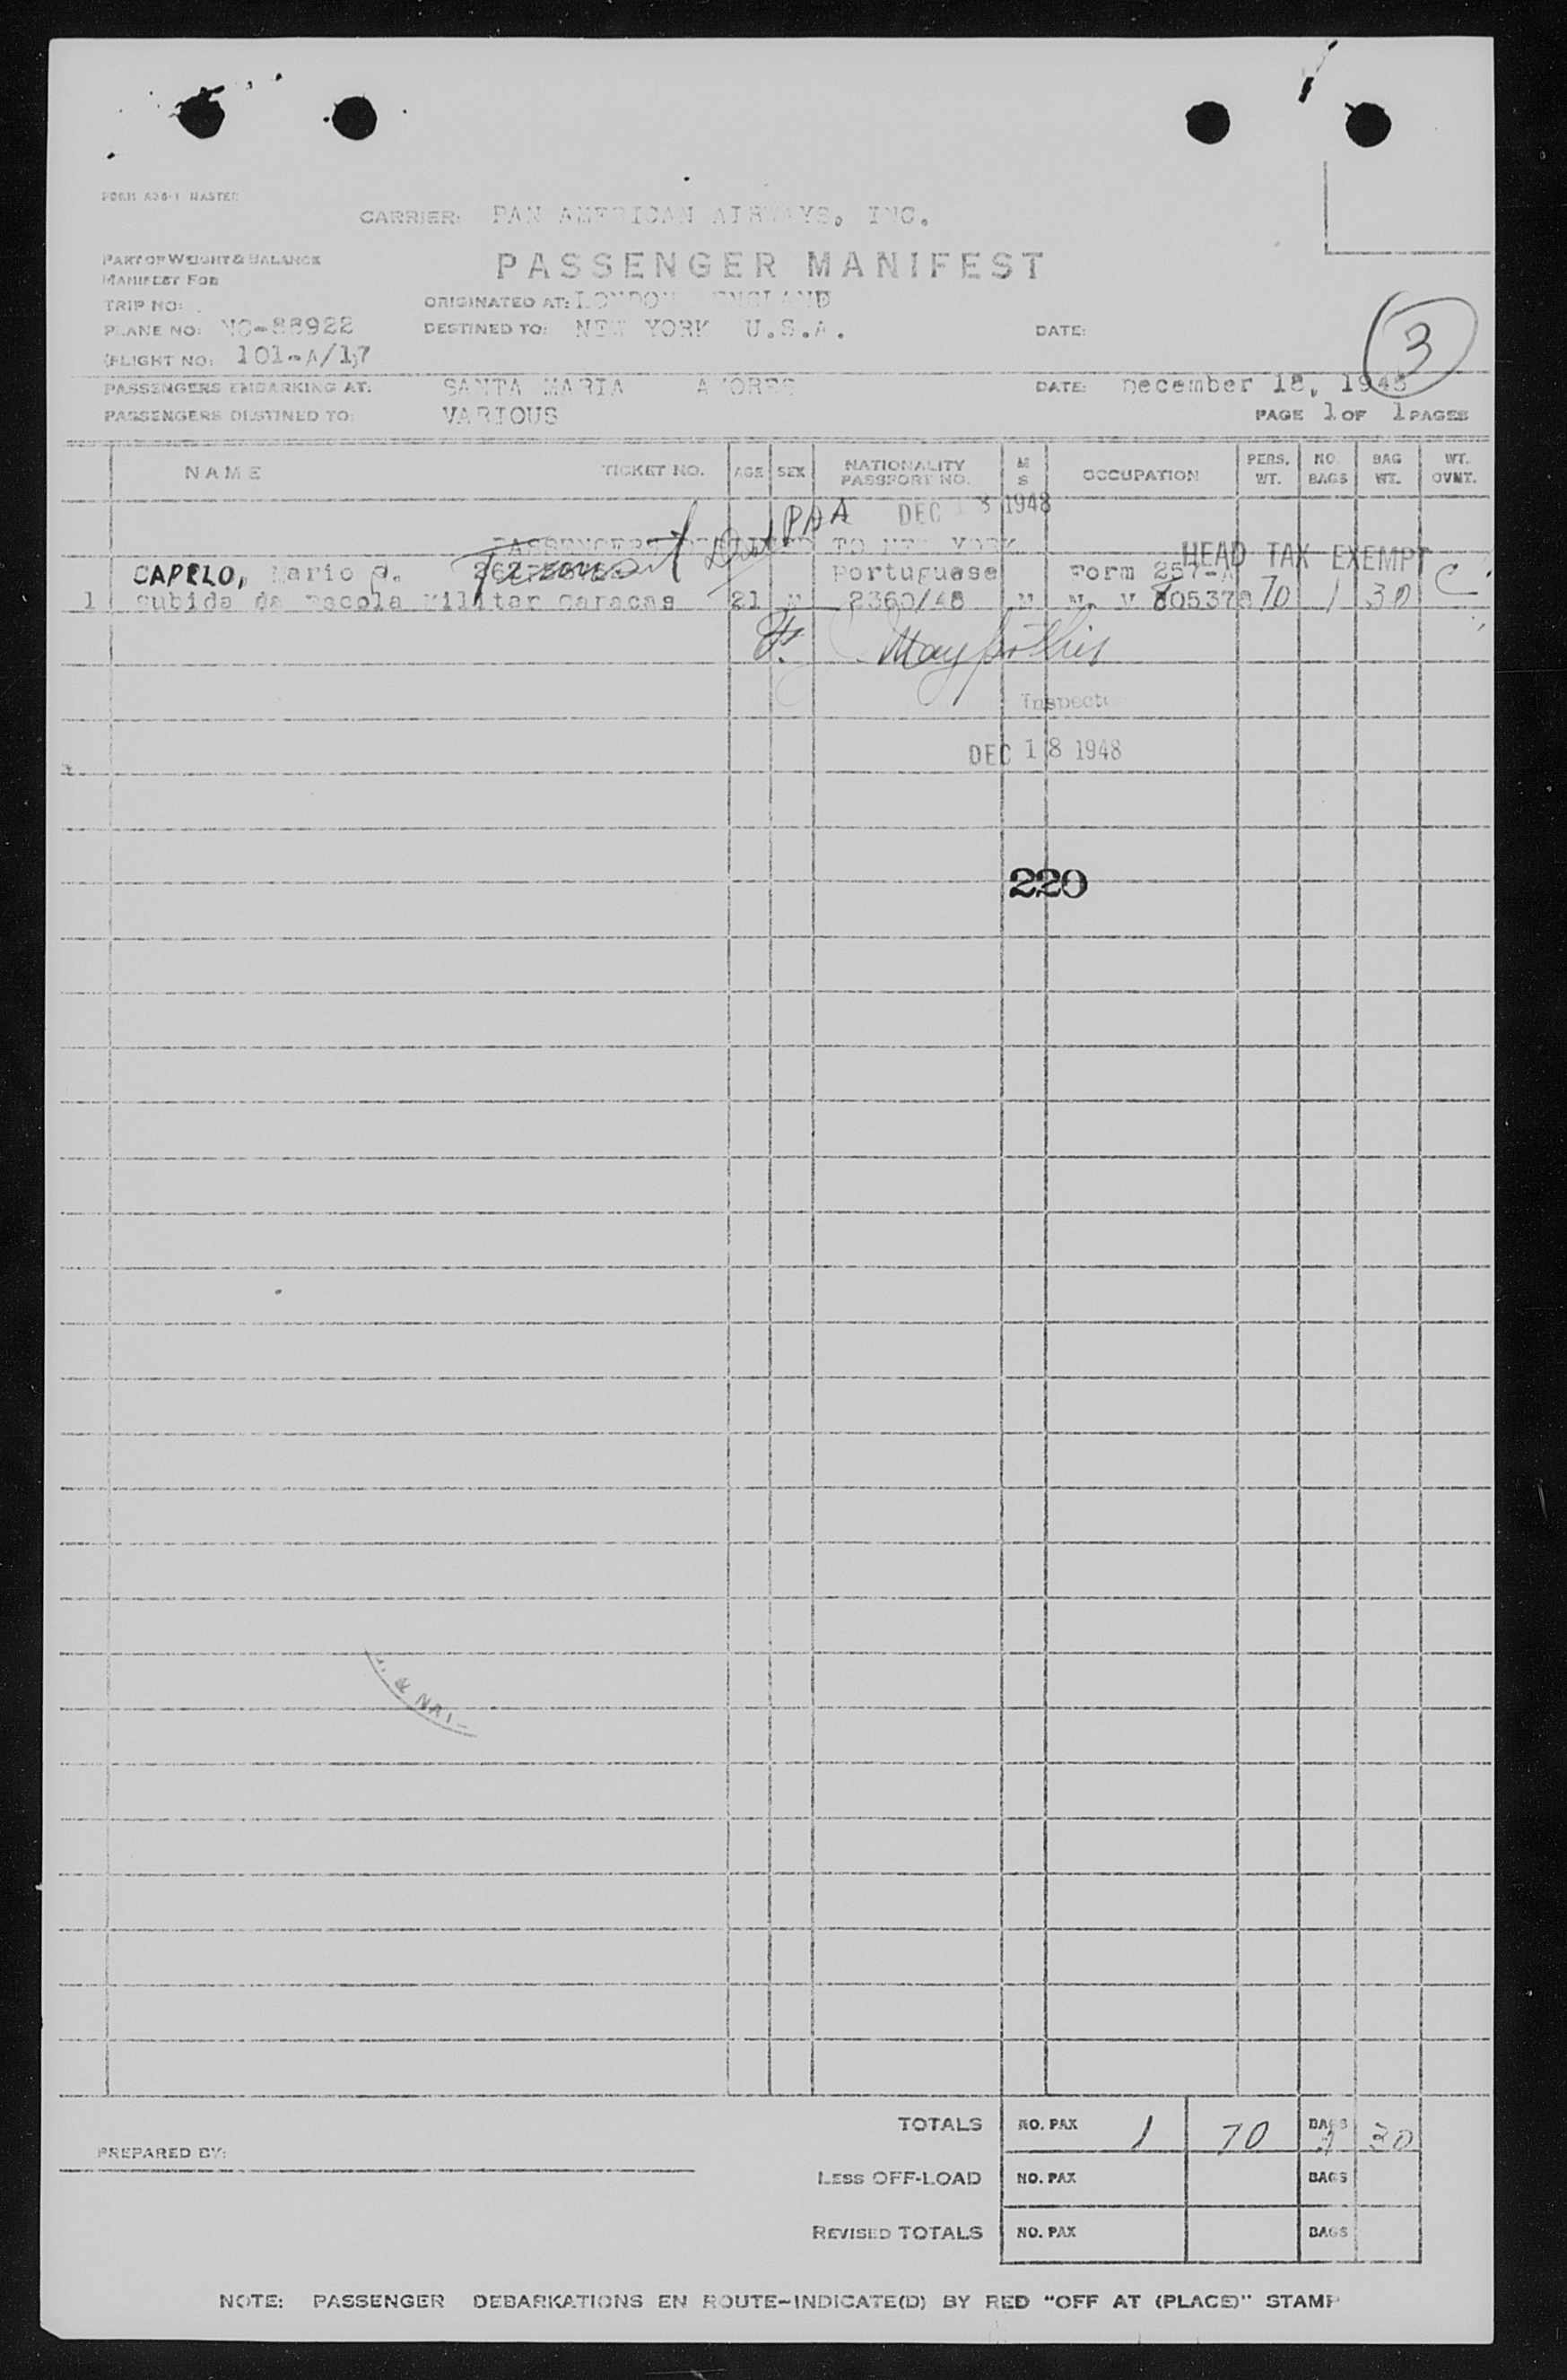 FORM 
CARRIER: PAN AMERICAN AIRWAYS, INC.
PART OF WEIGHT & BALANCE
MANIFEST FOR
PASSENGER MANIFEST
TRIP NO:
ORIGINATED AT: LONDON ENGLAND
PLANE NO: NC-88922
DESTINED TO: NEW YORK U.S.A.
DATE:
3
FLIGHT NO: 101-A/17
PASSENGERS EMBARKING AT: SANTA MARIA AZORES
DATE: December 18, 1948
PASSENGERS DESTINED TO: VARIOUS
PAGE 1 OF 1 PAGES
NAME TICKET NO. AGE SEX NATIONALITY PASSPORT NO. M S OCCUPATION PERS. WT. NO. BAGS BAG WT. WT. OVWT.
PAA DEC 18 1948
PASSENGERS DESTINED TO NEW YORK
HEAD TAX EXEMPT
CAPELO, Mario Portuguese Form 257-A C
1 Subida da Escola Militar Caracas 21 M 2360/48 M N. V 805378 70 1 30
Inspector
DEC 18 1948
220
& NAT
TOTALS NO. PAX 1 70 BAGS 1 30
PREPARED BY:
LESS OFF-LOAD NO. PAX BAGS
REVISED TOTALS NO. PAX BAGS
NOTE: PASSENGER DEBARKATIONS EN ROUTE-INDICATE(D) BY RED "OFF AT (PLACE)" STAMP